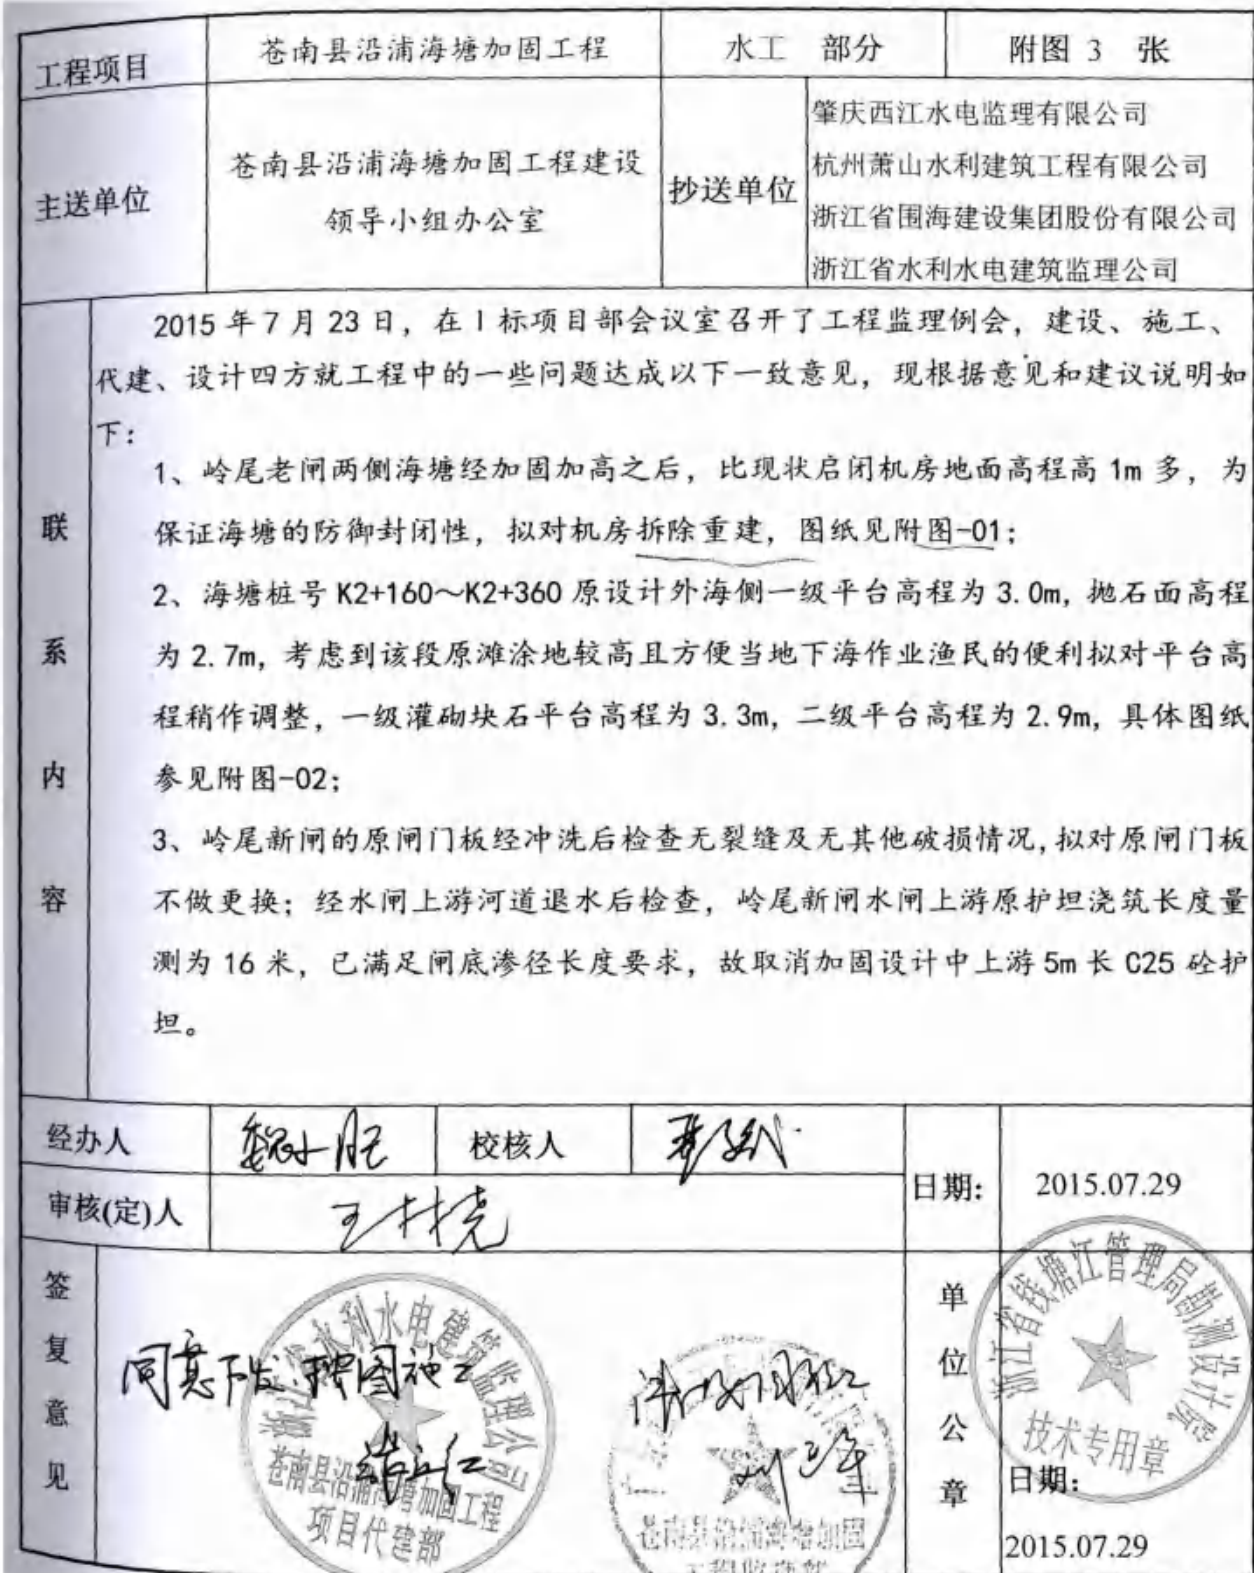 工程项目 苍南县沿浦海塘加固工程 水工 部分 附图 3 张
主送单位 苍南县沿浦海塘加固工程建设
领导小组办公室
抄送单位
肇庆西江水电监理有限公司
杭州萧山水利建筑工程有限公司
浙江省围海建设集团股份有限公司
浙江省水利水电建筑监理公司
联系内容
2015 年 7 月 23 日，在 I 标项目部会议室召开了工程监理例会，建设、施工、
代建、设计四方就工程中的一些问题达成以下一致意见，现根据意见和建议说明如
下：
1、岭尾老闸两侧海塘经加固加高之后，比现状启闭机房地面高程高 1m 多，为
保证海塘的防御封闭性，拟对机房拆除重建，图纸见附图-01；
2、海塘桩号 K2+160～K2+360 原设计外海侧一级平台高程为 3.0m，抛石面高程
为 2.7m，考虑到该段原滩涂地较高且方便当地下海作业渔民的便利拟对平台高
程稍作调整，一级灌砌块石平台高程为 3.3m，二级平台高程为 2.9m，具体图纸
参见附图-02；
3、岭尾新闸的原闸门板经冲洗后检查无裂缝及无其他破损情况，拟对原闸门板
不做更换；经水闸上游河道退水后检查，岭尾新闸水闸上游原护坦浇筑长度量
测为 16 米，已满足闸底渗径长度要求，故取消加固设计中上游 5m 长 C25 砼护
坦。
经办人 校核人
日期： 2015.07.29
审核(定)人
签复意见
同意下发，按图施工
浙江省水利水电建筑监理公司
苍南县沿浦海塘加固工程
项目代建部
苍南县沿浦海塘加固
工程监理部
单位公章
浙江省钱塘江管理局勘测设计院
技术专用章
日期：
2015.07.29